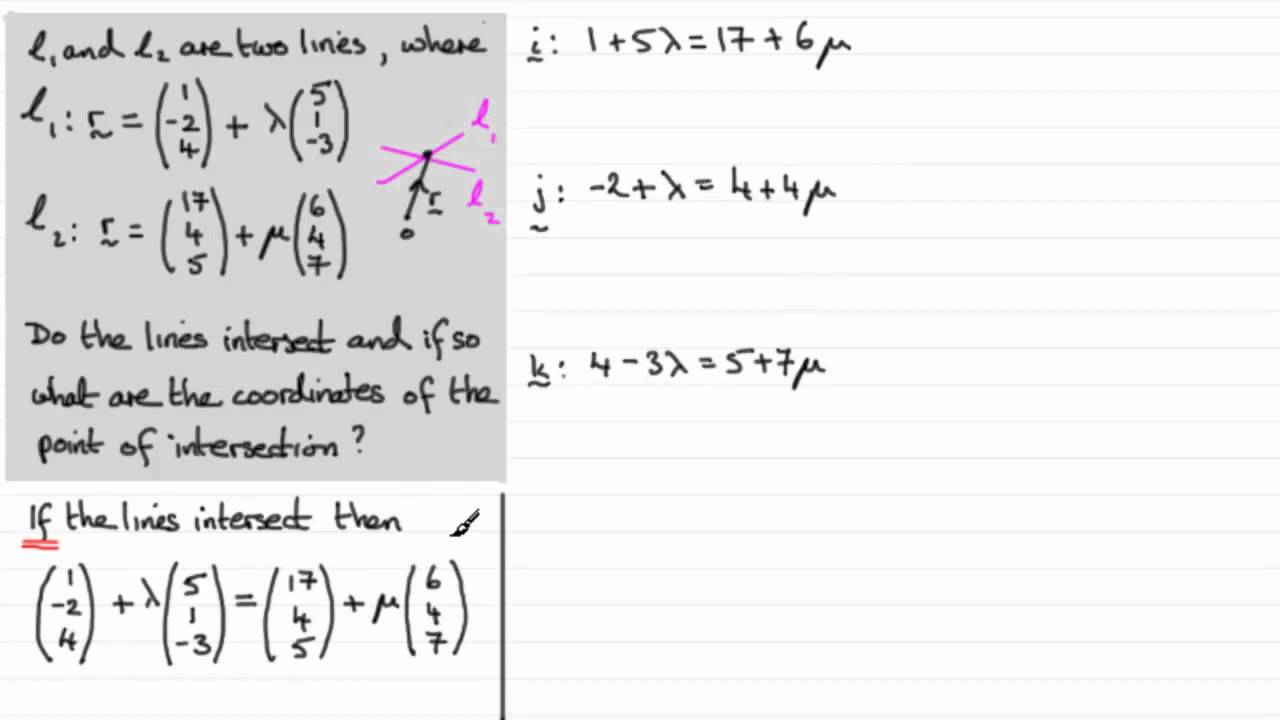 l₁ and l₂ are two lines, where
l₁: r = (1 -2 4) + λ(5 1 -3)
l₂: r = (17 4 5) + μ(6 4 7)
l₁
l₂
r
o
Do the lines intersect and if so
what are the coordinates of the
point of intersection?
If the lines intersect then
(1 -2 4) + λ(5 1 -3) = (17 4 5) + μ(6 4 7)
i: 1 + 5λ = 17 + 6μ
j: -2 + λ = 4 + 4μ
k: 4 - 3λ = 5 + 7μ